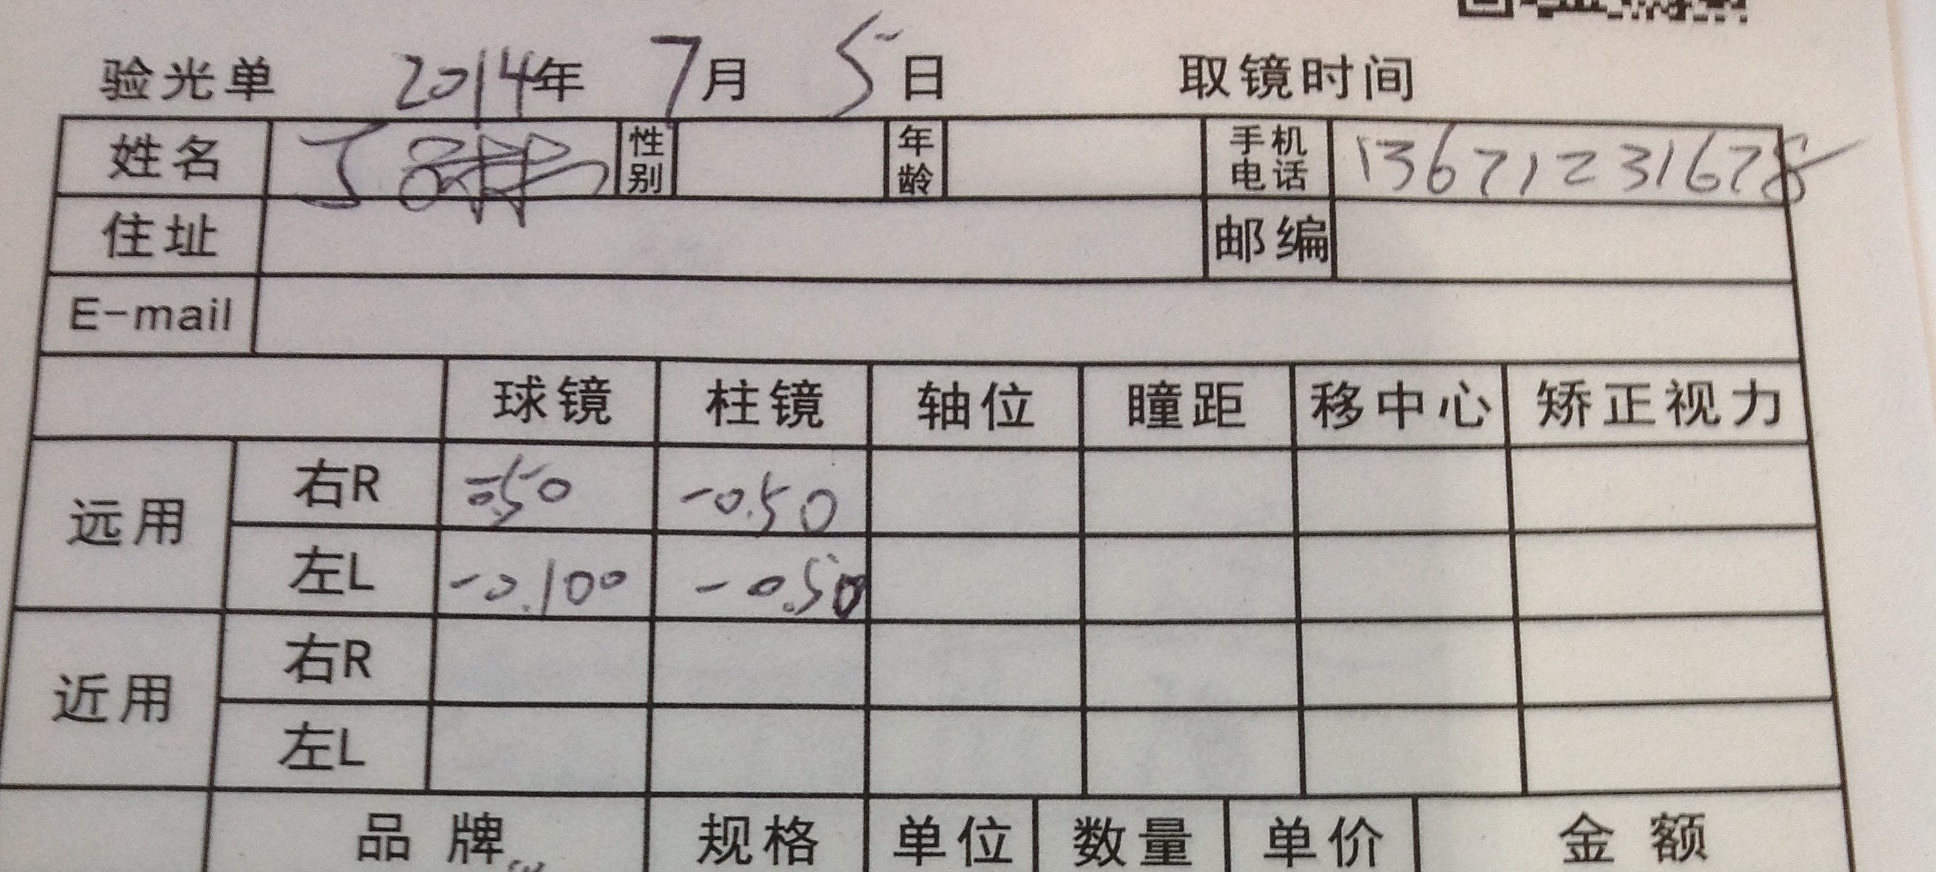 验光单 2014年 7月 5日 取镜时间
姓名 丁 性别 年龄 手机电话 13671231678
住址 邮编
E-mail
球镜 柱镜 轴位 瞳距 移中心 矫正视力
远用 右R -0.50 -0.50
左L -0.100 -0.50
近用 右R
左L
品牌 规格 单位 数量 单价 金额